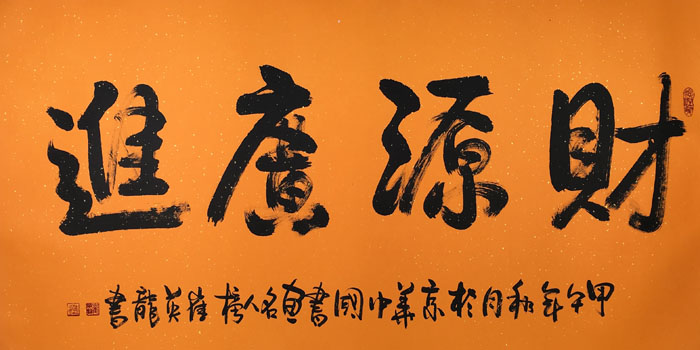 財源廣進
甲午年秋月於京華中國書画名人榜崔英龍書